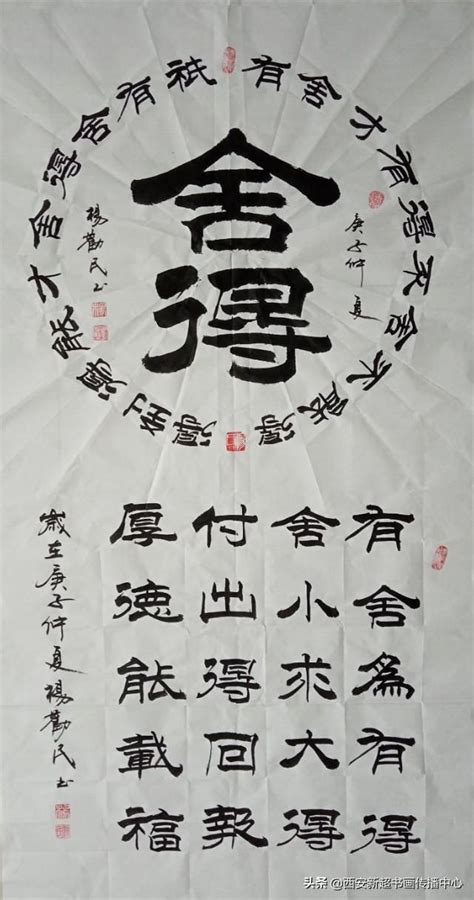 有舍才有得不舍不能得
祇有舍得舍才能得到得
舍得
庚子仲夏
楊勸民书
有舍為有得
舍小求大得
付出得回報
厚德能載福
歲在庚子仲夏楊勸民书
头条 @西安新超书画传播中心